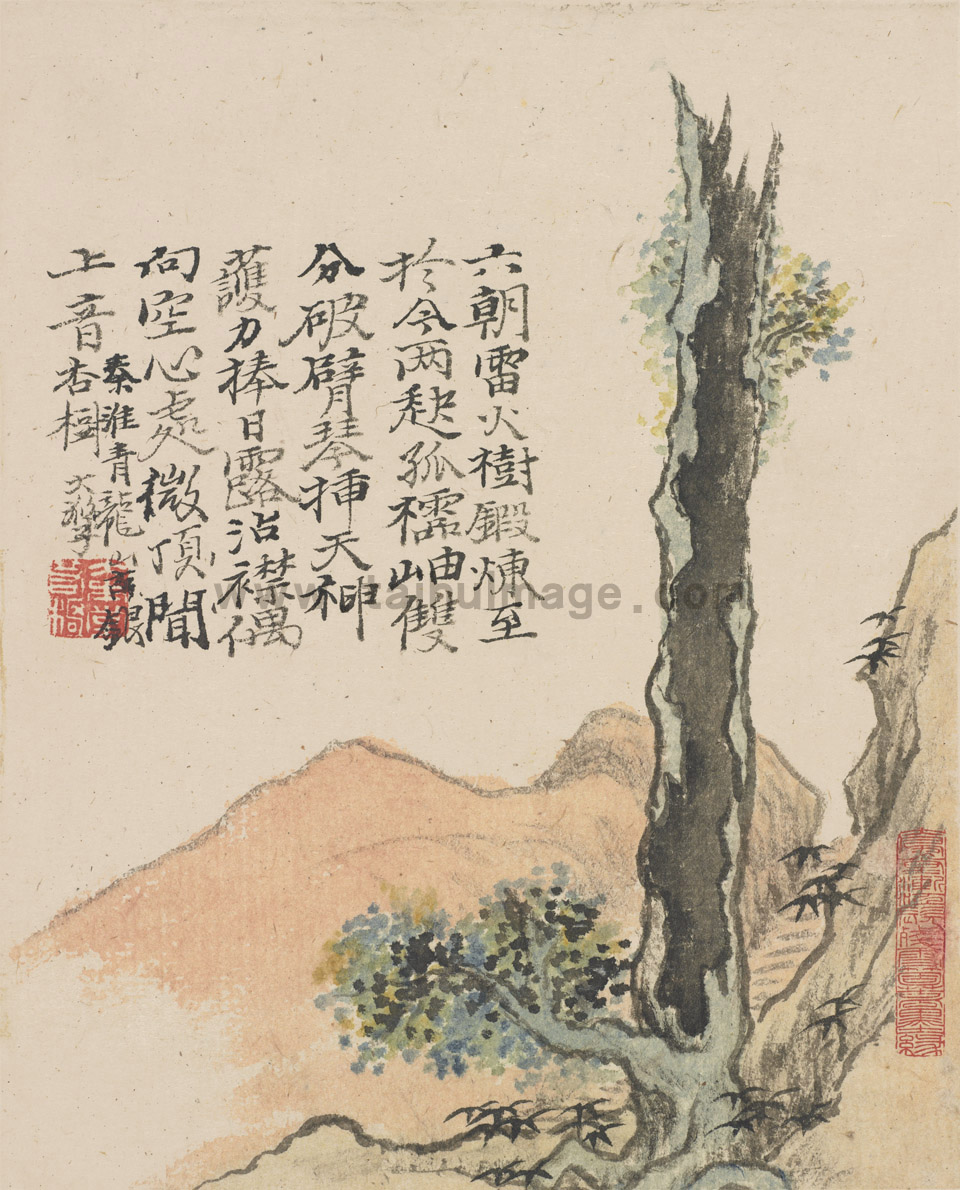 六朝雷火樹鍛煉至
於今两孤檽岫雙
分破臂琴挿天神
護力捧日露沾襟偶
向空心處微頂聞
上音
秦淮青龍山古銀
杏樹 大滌子
www.taihuimage.com